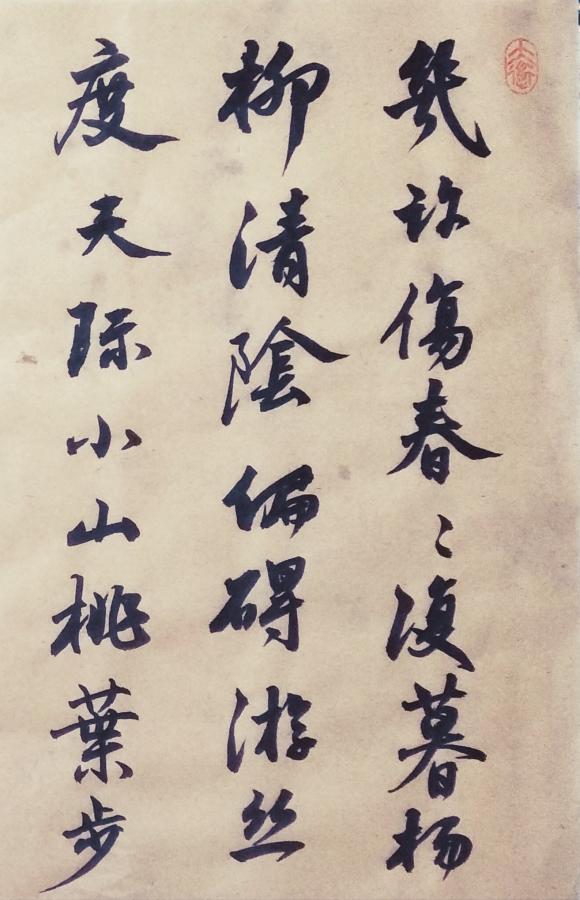 幾許傷春〻復暮杨
柳清陰偏碍游丝
度天际小山桃葉步